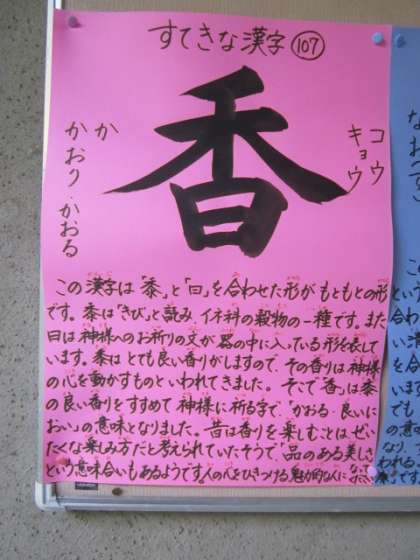 すてきな漢字 107
コウ
キョウ
香
か
かおり・かおる
この漢字は「黍」と「曰」を合わせた形がもともとの形
です。黍は「きび」と読み、イネ科の穀物の一種です。また
曰は神様へのお祈りの文が器の中に入っている形を表して
います。黍はとても良い香りがしますので、その香りは神様
の心を動かすものといわれてきました。そこで「香」は黍
の良い香りをすすめて神様に祈る字で、「かおる・良いに
おい」の意味となりました。昔は香りを楽しむことは、ぜい
たくな楽しみ方だと考えられていたそうで、品のある美しさ
という意味合いもあるようです。人の心をひきつける、魅力的な人に